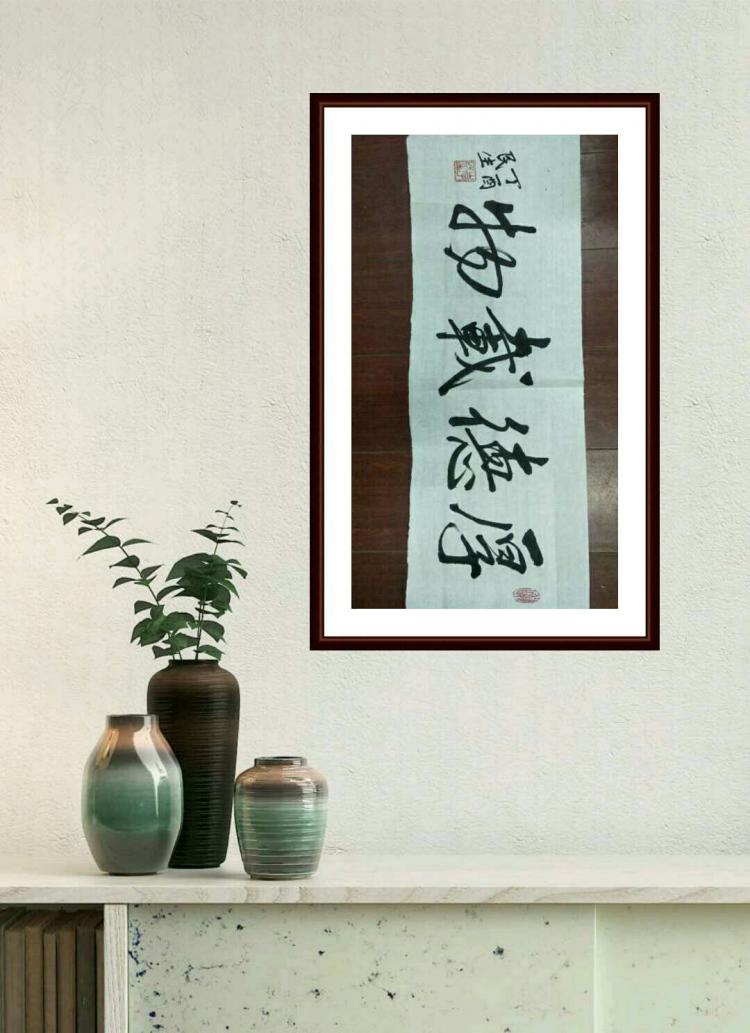 厚德載物
丁酉
民生